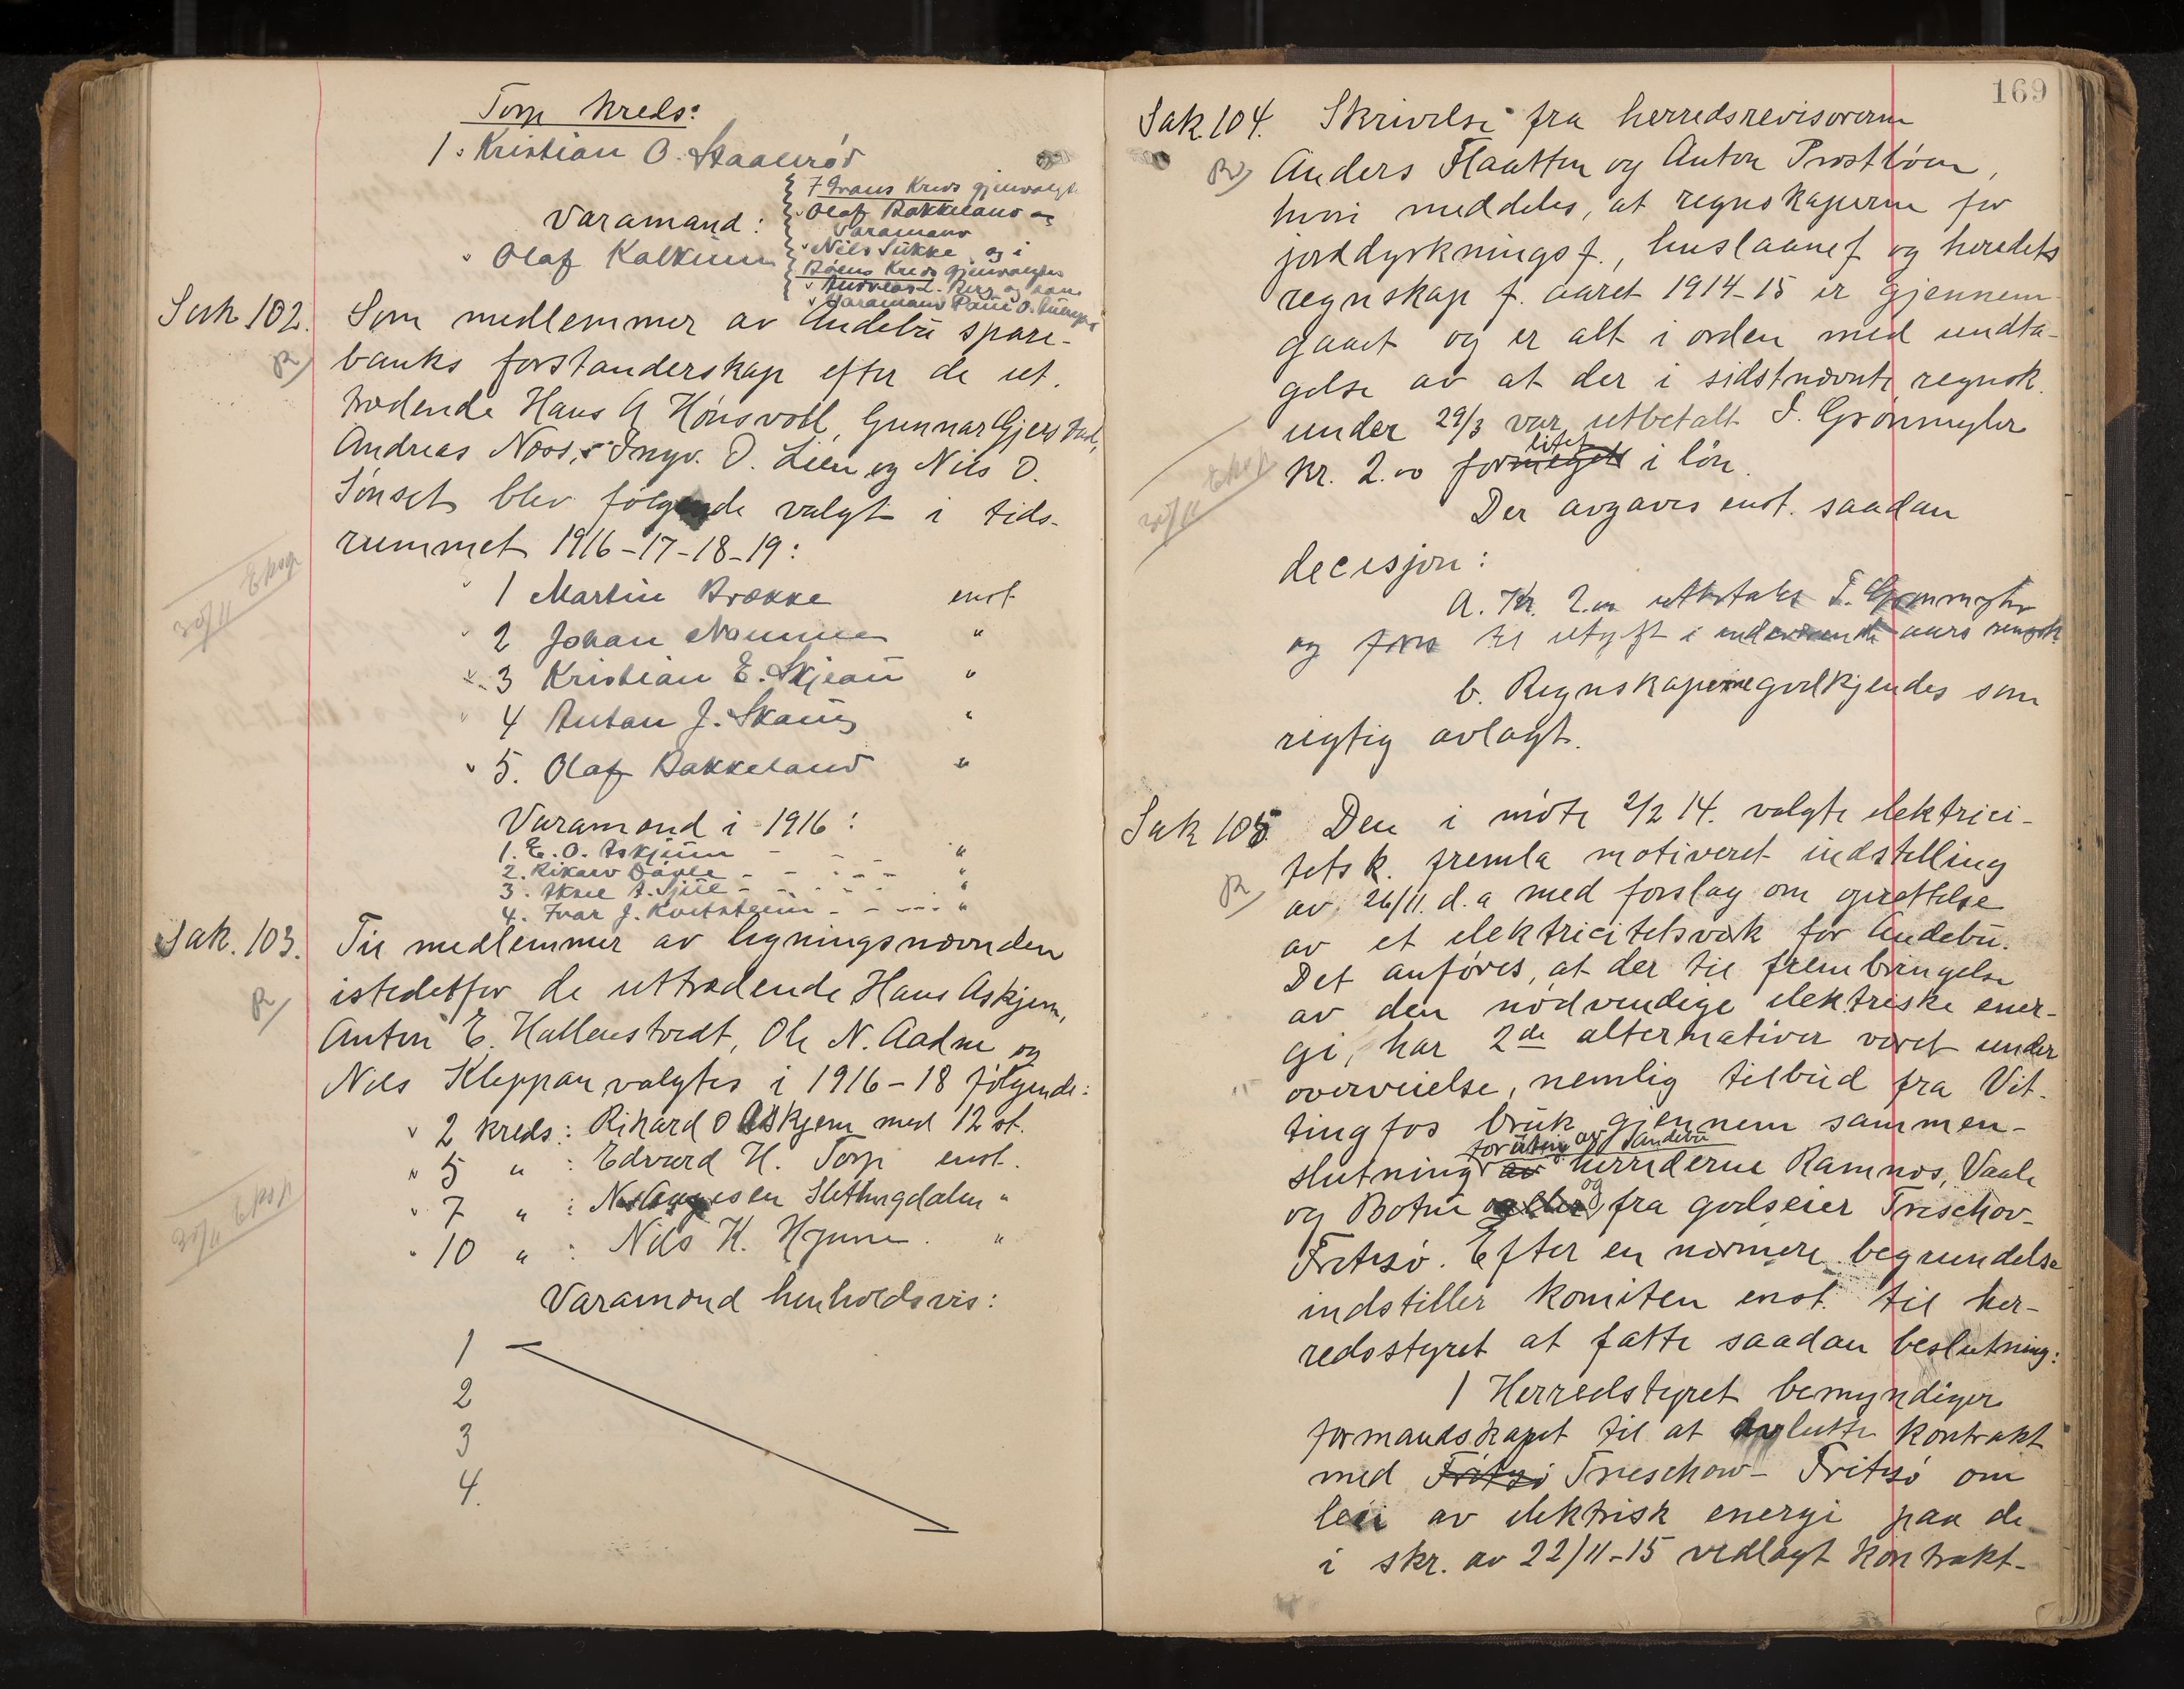 Torp kreds:
1. Kristian O. Staalerød
Varamand:
Olaf Kalkum
7 Ivans Kreds gjenvalgt
Olaf Bakkeland og
Varamand
Nils Sukke og i
Bøens Kreds gjenvalgtes
Andreas L. Berg og som
Varamand Paul O.
Sak 102.
Som medlemmer av Andebu spare-
banks forstanderskap efter de ut.
trædende Hans A Hønsvoll, Gunnar Gjerstad,
Andreas Næss, Ingv. O. Lien og Nils O.
Sønset blev følgende valgt i tids-
rummet 1916-17-18-19:
1 Martin Brække enst
2 Johan Namme "
3 Kristian E. Skjeau "
4 Anton J. Skaug "
5. Olaf Bakkeland "
30/11 Eksp
Varamænd i 1916:
1. E. O. Askjum - - - "
2. Rikard Davle - - - - - "
3. Aksel A. Sjue - - - - - "
4. Ivar J. Kvitsteim - - --- "
Sak. 103.
Til medlemmer av ligningsnævnden
istedetfor de uttrædende Hans Askjem,
Anton E. Hallenstvedt, Ole N. Aadne og
Nils Kleppan valgtes i 1916-18 følgende:
2 kreds: Rikard O Askjem med 12 st.
5 " : Edvard H. Torp enst.
7 " : N. Slettingdalen "
10 " : Nils K. Hjune. "
30/11 Eksp
Varamænd henholdsvis:
1
2
3
4.
169
Sak. 104.
Skrivelse fra herredsrevisorerne
Anders Flaatten og Anton Prestbøen,
hvori meddeles, at regnskaperne for
jorddyrkningsf., huslaanef og heredets
regnskap f. aaret 1914-15 er gjennem-
gaaet og er alt i orden med undta-
gelse av at der i sidstnævnte regnsk.
under 29/3 var utbetalt I. Grønmyhr
litet
kr. 2.00 formeget i løn.
Der avgaves enst. saadan
30/11 Eksp
decisjon:
A. Kr. 2.00 utbetales I. Grønmyhr
og føres til utgift i indeværende aars regnsk
b. Regnskaperne godkjendes som
rigtig avlagt.
Sak 105.
Den i møte 2/2 14. valgte elektrici-
tetsk. fremla motiveret indstilling
av 26/11. d. a med forslag om oprettelse
av et elektricitetsverk for Andebu.
Det anføres, at der til frembringelse
av den nødvendige elektriske ener-
gi, har 2de alternativer været under
overveielse, nemlig tilbud fra Vit-
tingfos bruk gjennem sammen-
foruten av Andebu
slutning av herrederne Ramnæs, Vaale
og
og Botne fra godseier Treschov-
Fritzsø. Efter en nærmere begrundelse
indstiller komiteen enst. til her-
redsstyret at fatte saadan beslutning:
1 Herredstyret bemyndiger
formandskapet til at avslutte kontrakt
med Fritzø Treschow- Fritzsø om
leie av elektrisk energi paa de
i skr. av 22/11-15 vedlagt kontrakt-